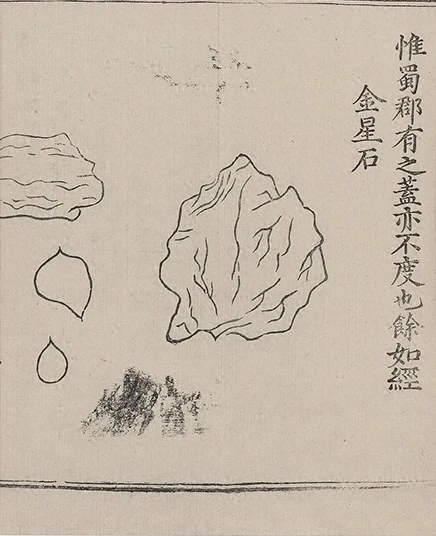 惟蜀郡有之蓋亦不度也餘如經
金星石